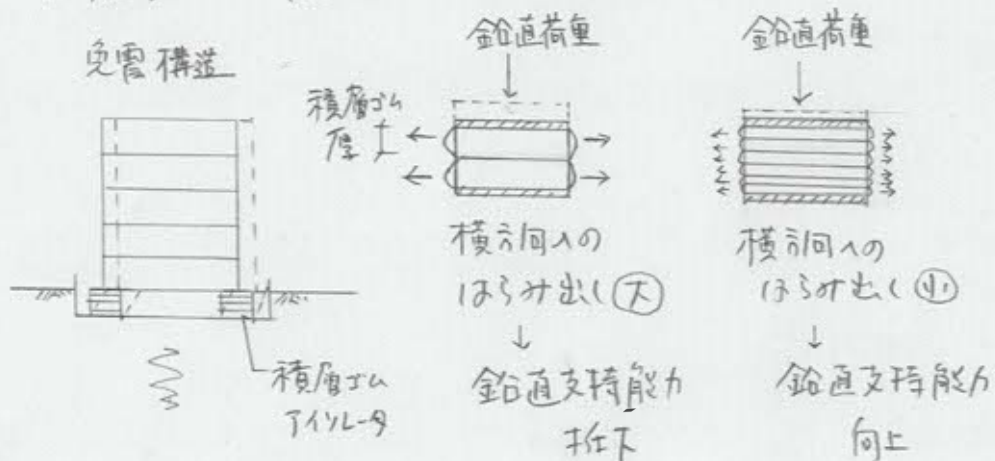 免震構造
積層ゴム
アイソレータ
積層ゴム
厚
鉛直荷重
横方向への
はらみ出し 大
↓
鉛直支持能力
低下
鉛直荷重
横方向への
はらみ出し 小
↓
鉛直支持能力
向上